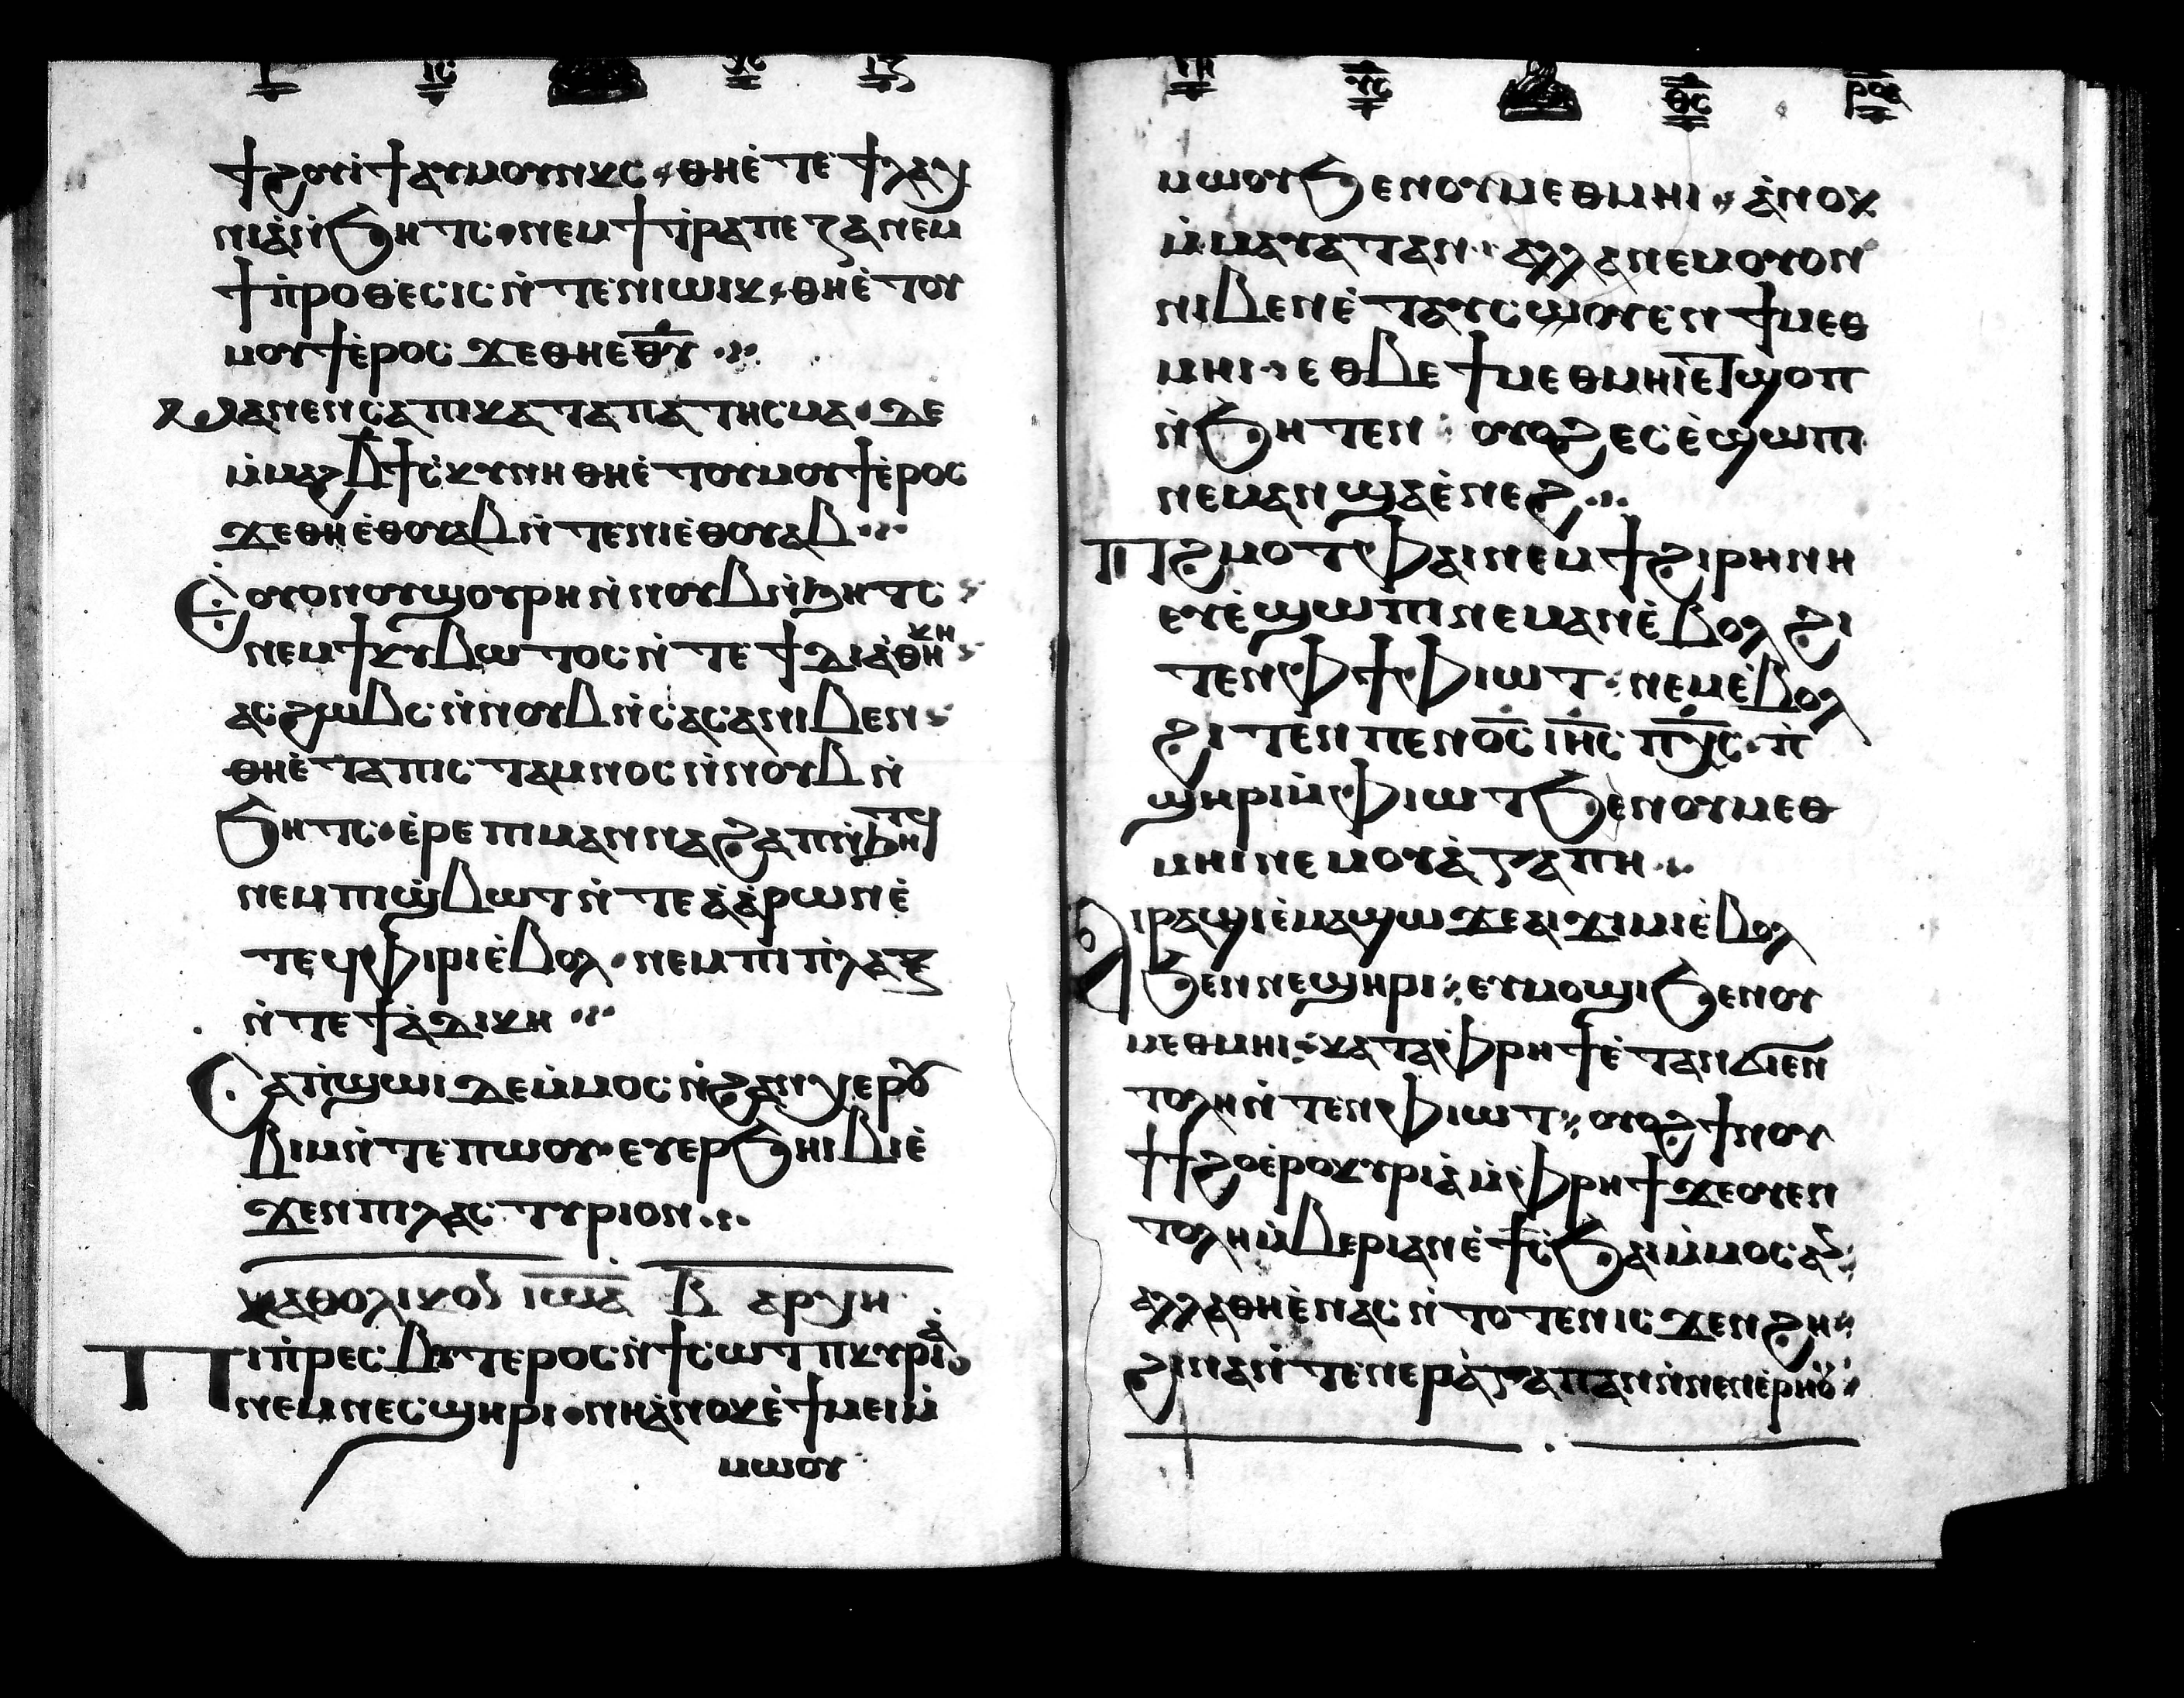 ϯϩⲟⲩⲓ̀ϯⲁⲩⲙⲟⲩⲛⲕⲥ ⲑⲏⲉ̀ⲧⲉ ϯⲗⲩⲭ
ⲛⲓⲁ̀ⲛ̀ϧⲏⲧⲥ ⲛⲉⲙϯⲧ̀ⲣⲁⲡⲉⲍⲁ ⲛⲉⲙ
ϯⲡ̀ⲣⲟⲑⲉⲥⲓⲥ ⲛ̀ⲧⲉⲛⲓⲱⲓⲕ ⲑⲏⲉ̀ⲧⲟⲩ
ⲙⲟⲩϯⲉ̀ⲣⲟⲥ ϫⲉⲑⲏⲉⲑ̅ⲩ̅
ⲙⲉⲛⲉⲛⲥⲁⲡⲓⲕⲁⲧⲁⲡⲁⲧⲏⲥⲙⲁ ϫⲉ
ⲙ̀ⲙⲁϩⲃ̅ϯⲥ̀ⲕⲩⲛⲏ ⲑⲏⲉ̀ⲧⲟⲩⲙⲟⲩϯⲉ̀ⲣⲟⲥ
ϫⲉⲑⲏⲉ̀ⲑⲟⲩⲁⲃ ⲛ̀ⲧⲉⲛⲓⲉ̀ⲑⲟⲩⲁⲃ
Ⲉ̀ⲟⲩⲟⲛⲟⲩϣⲟⲩⲣⲏ ⲛ̀ⲛⲟⲩⲃ ⲛ̀ϧⲏⲧⲥ
ⲛⲉⲙϯⲕⲩⲃⲱⲧⲟⲥ ⲛ̀ⲧⲉ ϯⲇⲓⲁ̀ⲑⲏⲕⲏ
ⲁⲥϩⲱⲃⲥ ⲛ̀ⲛⲟⲩⲃ ⲛ̀ⲥⲁⲥⲁ ⲛⲓⲃⲉⲛ
ⲑⲏⲉ̀ⲧⲁⲡⲓⲥⲧⲁⲙⲛⲟⲥ ⲛ̀ⲛⲟⲩⲃ ⲛ̀
ϧⲏⲧⲥ ⲉ̀ⲣⲉ ⲡⲓⲙⲁⲛⲛⲁ ϩⲁⲡⲓⲛ̀ϧⲏⲧϥ
ⲛⲉⲙⲡⲓϣ̀ⲃⲱⲧ ⲛ̀ⲧⲉ ⲁ̀ⲁ̀ⲣⲱⲛ ⲉ̀
ⲧⲉϥⲫⲓⲣⲓⲉ̀ⲃⲟⲗ ⲛⲉⲙⲡⲓⲡ̀ⲗⲁⲝ
ⲛ̀ⲧⲉϯⲁ̀ⲇⲓⲕⲏ
Ⲥⲁⲡ̀ϣⲱⲓ ϫⲉⲙ̀ⲙⲟⲥ ⲛ̀ϩⲁⲛⲭⲉⲣⲟⲩ
ⲃⲓⲙ ⲛ̀ⲧⲉ ⲡⲱⲟⲩ ⲉⲩⲉⲣϧⲏⲓⲃⲓ ⲉ̀
ϫⲉⲛⲡⲓⲗⲁⲥⲧⲩⲣⲓⲟⲛ
ⲕⲁⲑⲟⲗⲓⲕⲟⲛ ⲓⲱⲁ̅ Ⲃ ⲁⲣⲭⲏ
Ⲡⲓⲡ̀ⲣⲉⲥⲃⲩⲧⲉⲣⲟⲥ ⲛ̀ϯⲥⲱⲧⲡ ⲕⲩⲣⲓⲁ̀
ⲛⲉⲙⲛⲉⲥϣⲏⲣⲓ ⲛⲏⲁ̀ⲛⲟⲕ ⲉ̀ϯⲙⲉⲓⲙ̀
ⲙⲱⲟⲩ
ⲙⲱⲟⲩ ϧⲉⲛⲟⲩⲙⲉⲑⲙⲏⲓ ⲁ̀ⲛⲟⲕ
ⲙ̀ⲙⲁⲩⲁⲧ ⲁⲛ ⲁⲗⲗⲁ ⲛⲉⲙⲟⲩⲟⲛ
ⲛⲓⲃⲉⲛ ⲉ̀ⲧⲁⲩⲥⲱⲟⲩⲉⲛ ϯⲙⲉⲑ
ⲙⲏⲓ ⲉⲑⲃⲉ ϯⲙⲉⲑⲙⲏⲓ ⲉⲧϣⲟⲡ
ⲛ̀ϧⲏⲧⲉⲛ ⲟⲩⲟϩ ⲉⲥⲉ̀ϣⲱⲡⲓ
ⲛⲉⲙⲁⲛ ϣⲁⲉ̀ⲛⲉϩ
Ⲡϩⲙⲟⲧ ⲫⲁⲓ ⲛⲉⲙϯϩⲓⲣⲏⲛⲏ
ⲉⲩⲉ̀ϣⲱⲡⲓ ⲛⲉⲙⲁⲛ ⲉ̀ⲃⲟⲗ ϩⲓ
ⲧⲉⲛ ⲫϯ ⲫⲓⲱⲧ ⲛⲉⲙ ⲉ̀ⲃⲟⲗ
ϩⲓⲧⲉⲛ ⲡⲉⲛⲟ̅ⲥ̅ ⲓ̅ⲏ̅ⲥ̅ ⲡ̅ⲭ̅ⲥ̅ ⲡ̀
ϣⲏⲣⲓ ⲙ̀ⲫⲓⲱⲧ ϧⲉⲛⲟⲩⲙⲉⲑ
ⲙⲏⲓ ⲛⲉⲙⲟⲩⲁ̀ⲅⲁⲡⲏ
Ⲁⲓⲣⲁϣⲓ ⲉ̀ⲙⲁϣⲱ ϫⲉ ⲁⲓϫⲓⲙⲓ ⲉ̀ⲃⲟⲗ
ϧⲉⲛ ⲛⲉϣⲏⲣⲓ ⲉⲩⲙⲟϣⲓ ϧⲉⲛⲟⲩ
ⲙⲉⲑⲙⲏⲓ ⲕⲁⲧⲁ ⲫⲣⲏϯ ⲉ̀ⲧⲁⲛϭⲓⲉⲛ
ⲧⲟⲗⲏ ⲛ̀ⲧⲉⲛ ⲫⲓⲱⲧ ⲟⲩⲟϩ ϯⲛⲟⲩ
ϯϯϩⲟ ⲉ̀ⲣⲟ ⲕⲩⲣⲓⲁ̀ ⲙ̀ⲫⲣⲏϯ ϫⲉⲟⲩⲉⲛ
ⲧⲟⲗⲏ ⲙ̀ⲃⲉⲣⲓ ⲁⲛ ⲉ̀ϯⲥ̀ϧⲁⲓ ⲙ̀ⲙⲟⲥ
ⲁⲗⲗⲁ ⲑⲏⲉ̀ⲛⲁⲥ ⲛ̀ⲧⲟⲧⲉⲛ ⲓⲥϫⲉⲛ ϩⲏ
ϩⲓⲛⲁ ⲛ̀ⲧⲉⲛⲉⲣⲁ̀ⲅⲁⲡⲁⲛ ⲛ̀ⲛⲉⲛⲉ̀ⲣⲏⲟⲩ